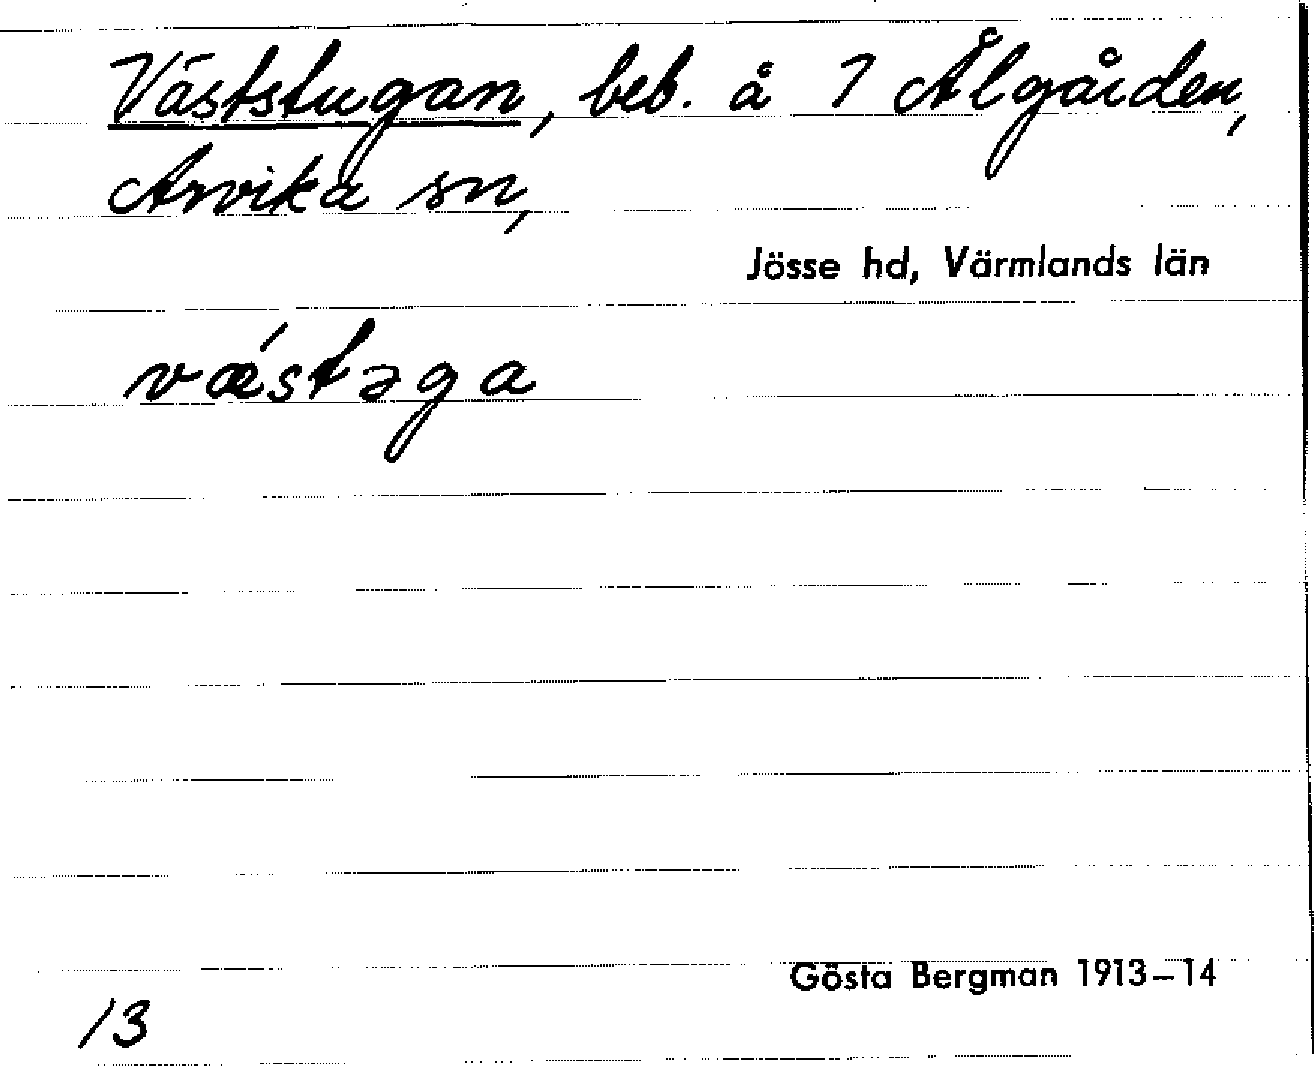 Väststugan, beb. å 7 Ålgården,
Arvika sn,
Jösse hd, Värmlands län
vǽstəga
Gösta Bergman 1913–14
13